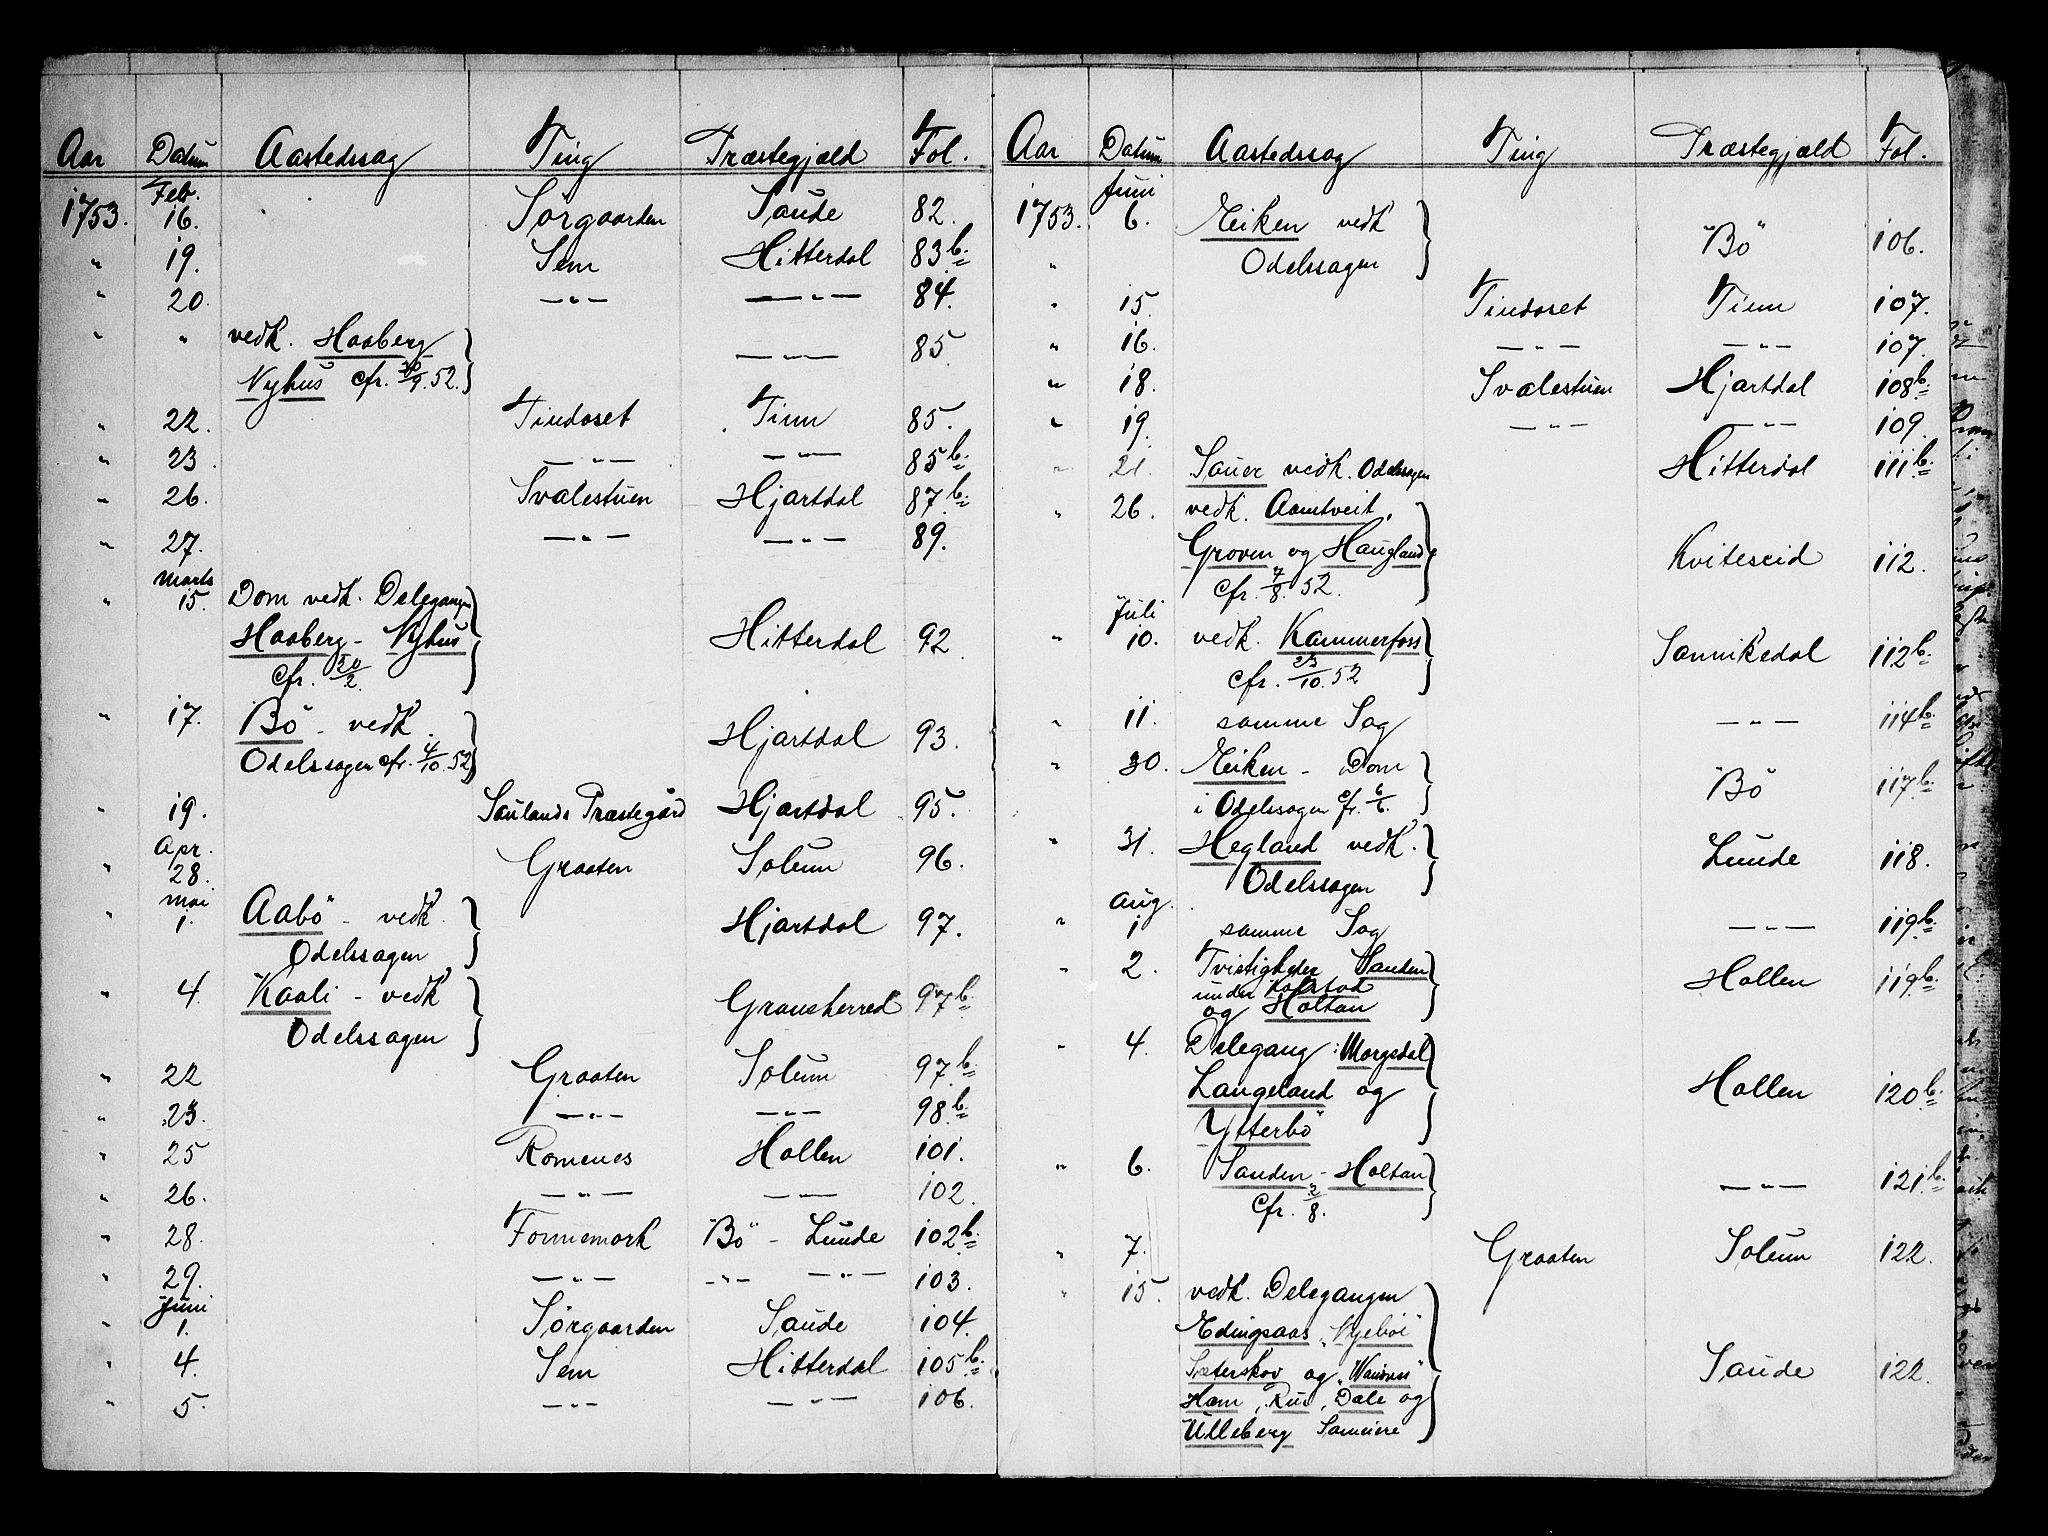 Aar Datum Aastedssag Ting Præstegjæld Fol.
1753. Feb. 16. Sørgaarden Saude 82.
" 19. Sem Hitterdal 83b.
" 20. —"— —"— 84.
" " vedk. Haaberg —"— 85
Nyhus cfr. 30/9. 52.
" 22. Tindoset Tinn 85.
" 23. —"— —"— 85b.
" 26. Svalestuen Hjartdal 87b.
" 27. —"— —"— 89.
" Marts 15. Dom vedk. Delegangen
Haaberg - Nyhus Hitterdal 92
cfr. 20/2.
" 17. Bö - vedk. Hjartdal 93.
Odelssagen cfr. 4/10. 52
" 19. Saulands Præstegård Hjartdal 95.
" Apr. 28. Graaten Solum 96.
" Mai 1. Aabö - vedk. Hjartdal 97.
Odelssagen
" 4. Kaali - vedk Gransherred 97b.
Odelssagen
" 22 Graaten Solum 97b.
" 23. —"— —"— 98b.
" 25 Romenes Hollen 101.
" 26. —"— —"— 102.
" 28. Fonnemork Bö - Lunde 102b.
" 29. —"— —"— —"— 103.
" Juni 1. Sørgaarden Saude 104.
" 4. Sem Hitterdal 105b.
" 5. —"— —"— 106.
Aar Datum Aastedssag Ting Præstegjæld Fol.
1753. Juni 6. Eiken vedk Bö 106.
" Odelssagen
" 15. Tindoset Tinn 107.
" 16. —"— —"— 107.
" 18. Svalestuen Hjartdal 108b.
" 19. —"— —"— 109.
" 21. Sauer vedk. Odelssagen Hitterdal 111b.
" 26. vedk. Aamtveit,
Groven og Haugland Kviteseid 112.
cfr. 7/8. 52.
" Juli 10. vedk. Kammerfoss Sannikedal 112b.
cfr. 23/10. 52
" 11. samme Sag —"— 114b.
" 30. Eiken - Dom Bö 117b.
i Odelssagen cfr. 6/6.
" 31. Hegland vedk. Lunde 118.
Odelssagen
" Aug. 1 samme Sag —"— 119b.
" 2. Tvistigheder Sanden Hollen 119b.
under Kolstad
og Holtan
" 4. Delegang: Morgedal
Langeland og Hollen 120b.
Ytterbö
" 6. Sanden - Holtan —"— 121b.
cfr. 2/8.
" 7. Graaten Solum 122.
" 15. vedk. Delegangen
Edingsaas "Nyeboi"
Sæterskov og Saude 122.
Ham, Rus, Dale og
Ulleberg Sameiere